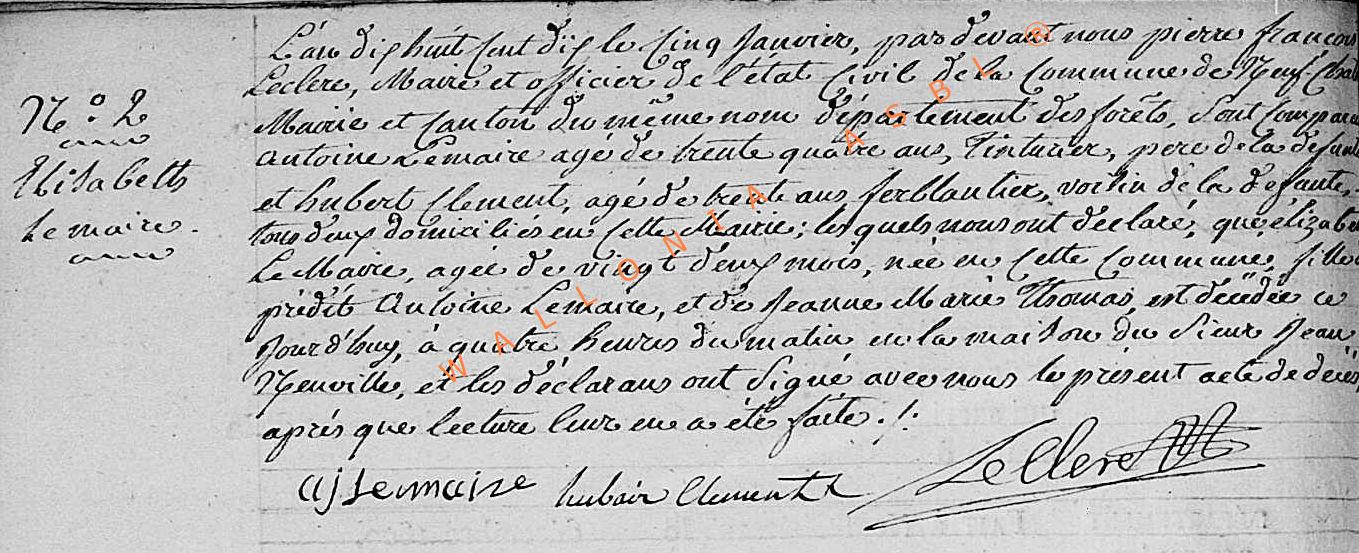 N.° 2
Elisabeth
Lemaire.
L'an dix huit cent dix le cinq Janvier, par devant nous pierre francois
Leclere, Maire et officier de l'état Civil de la Commune de Neuf-Cha
Mairie et Canton du même nom département des forêts, sont compar
antoine Lemaire agé de trente quatre ans, Tinturier, pere de la defun
et hubert Clement, agé de trente ans ferblantier, voisin de la defunte,
tous deux domiciliés en Cette Mairie; les quels nous ont déclaré, que élizabe
Le Maire, agée de vingt deux mois, née en Cette Commune, fille
prédit Antoine Lemaire, et de Jeanne Marie Thomas, est décédée ce
jourd'huy, à quatre heures du matin en la maison du Sieur Jean
Neuville, et les déclarans ont Signé avec nous le présent acte de décès
après que lecture leur en a été faite ./.
aj Lemaire hubair Clement Leclere
WALLONIA ASBL ®